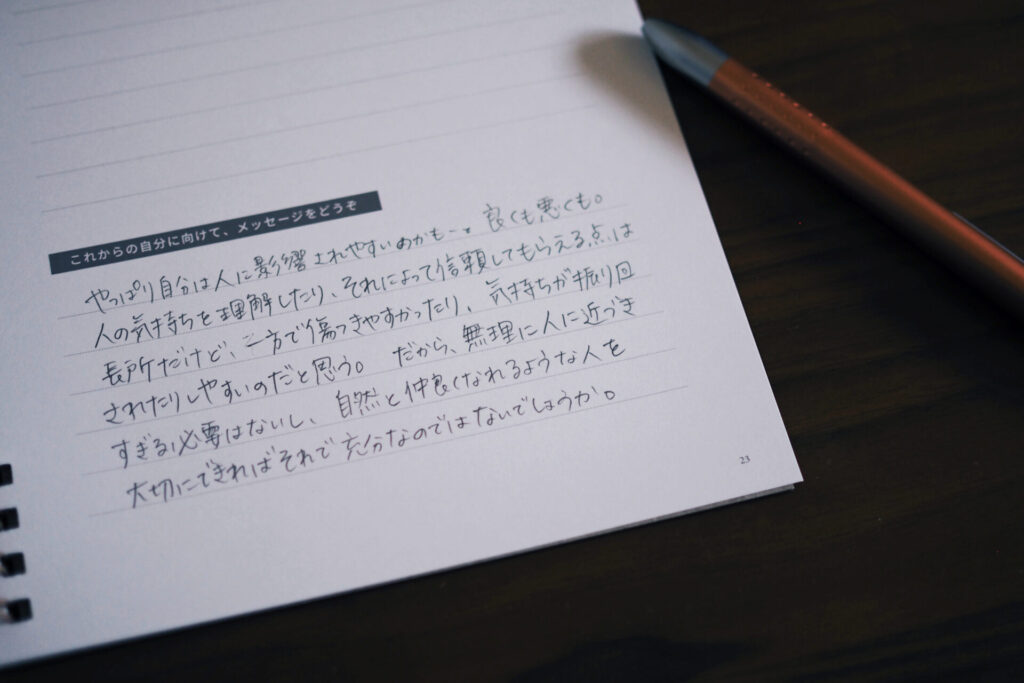 これからの自分に向けて、メッセージをどうぞ
やっぱり自分は人に影響されやすいのかも…。良くも悪くも。
人の気持ちを理解したり、それによって信頼してもらえる点は
長所だけど、一方で傷つきやすかったり、気持ちが振り回
されたりしやすいのだと思う。だから、無理に人に近づき
すぎる必要はないし、自然と仲良くなれるような人を
大切にできればそれで充分なのではないでしょうか。
23